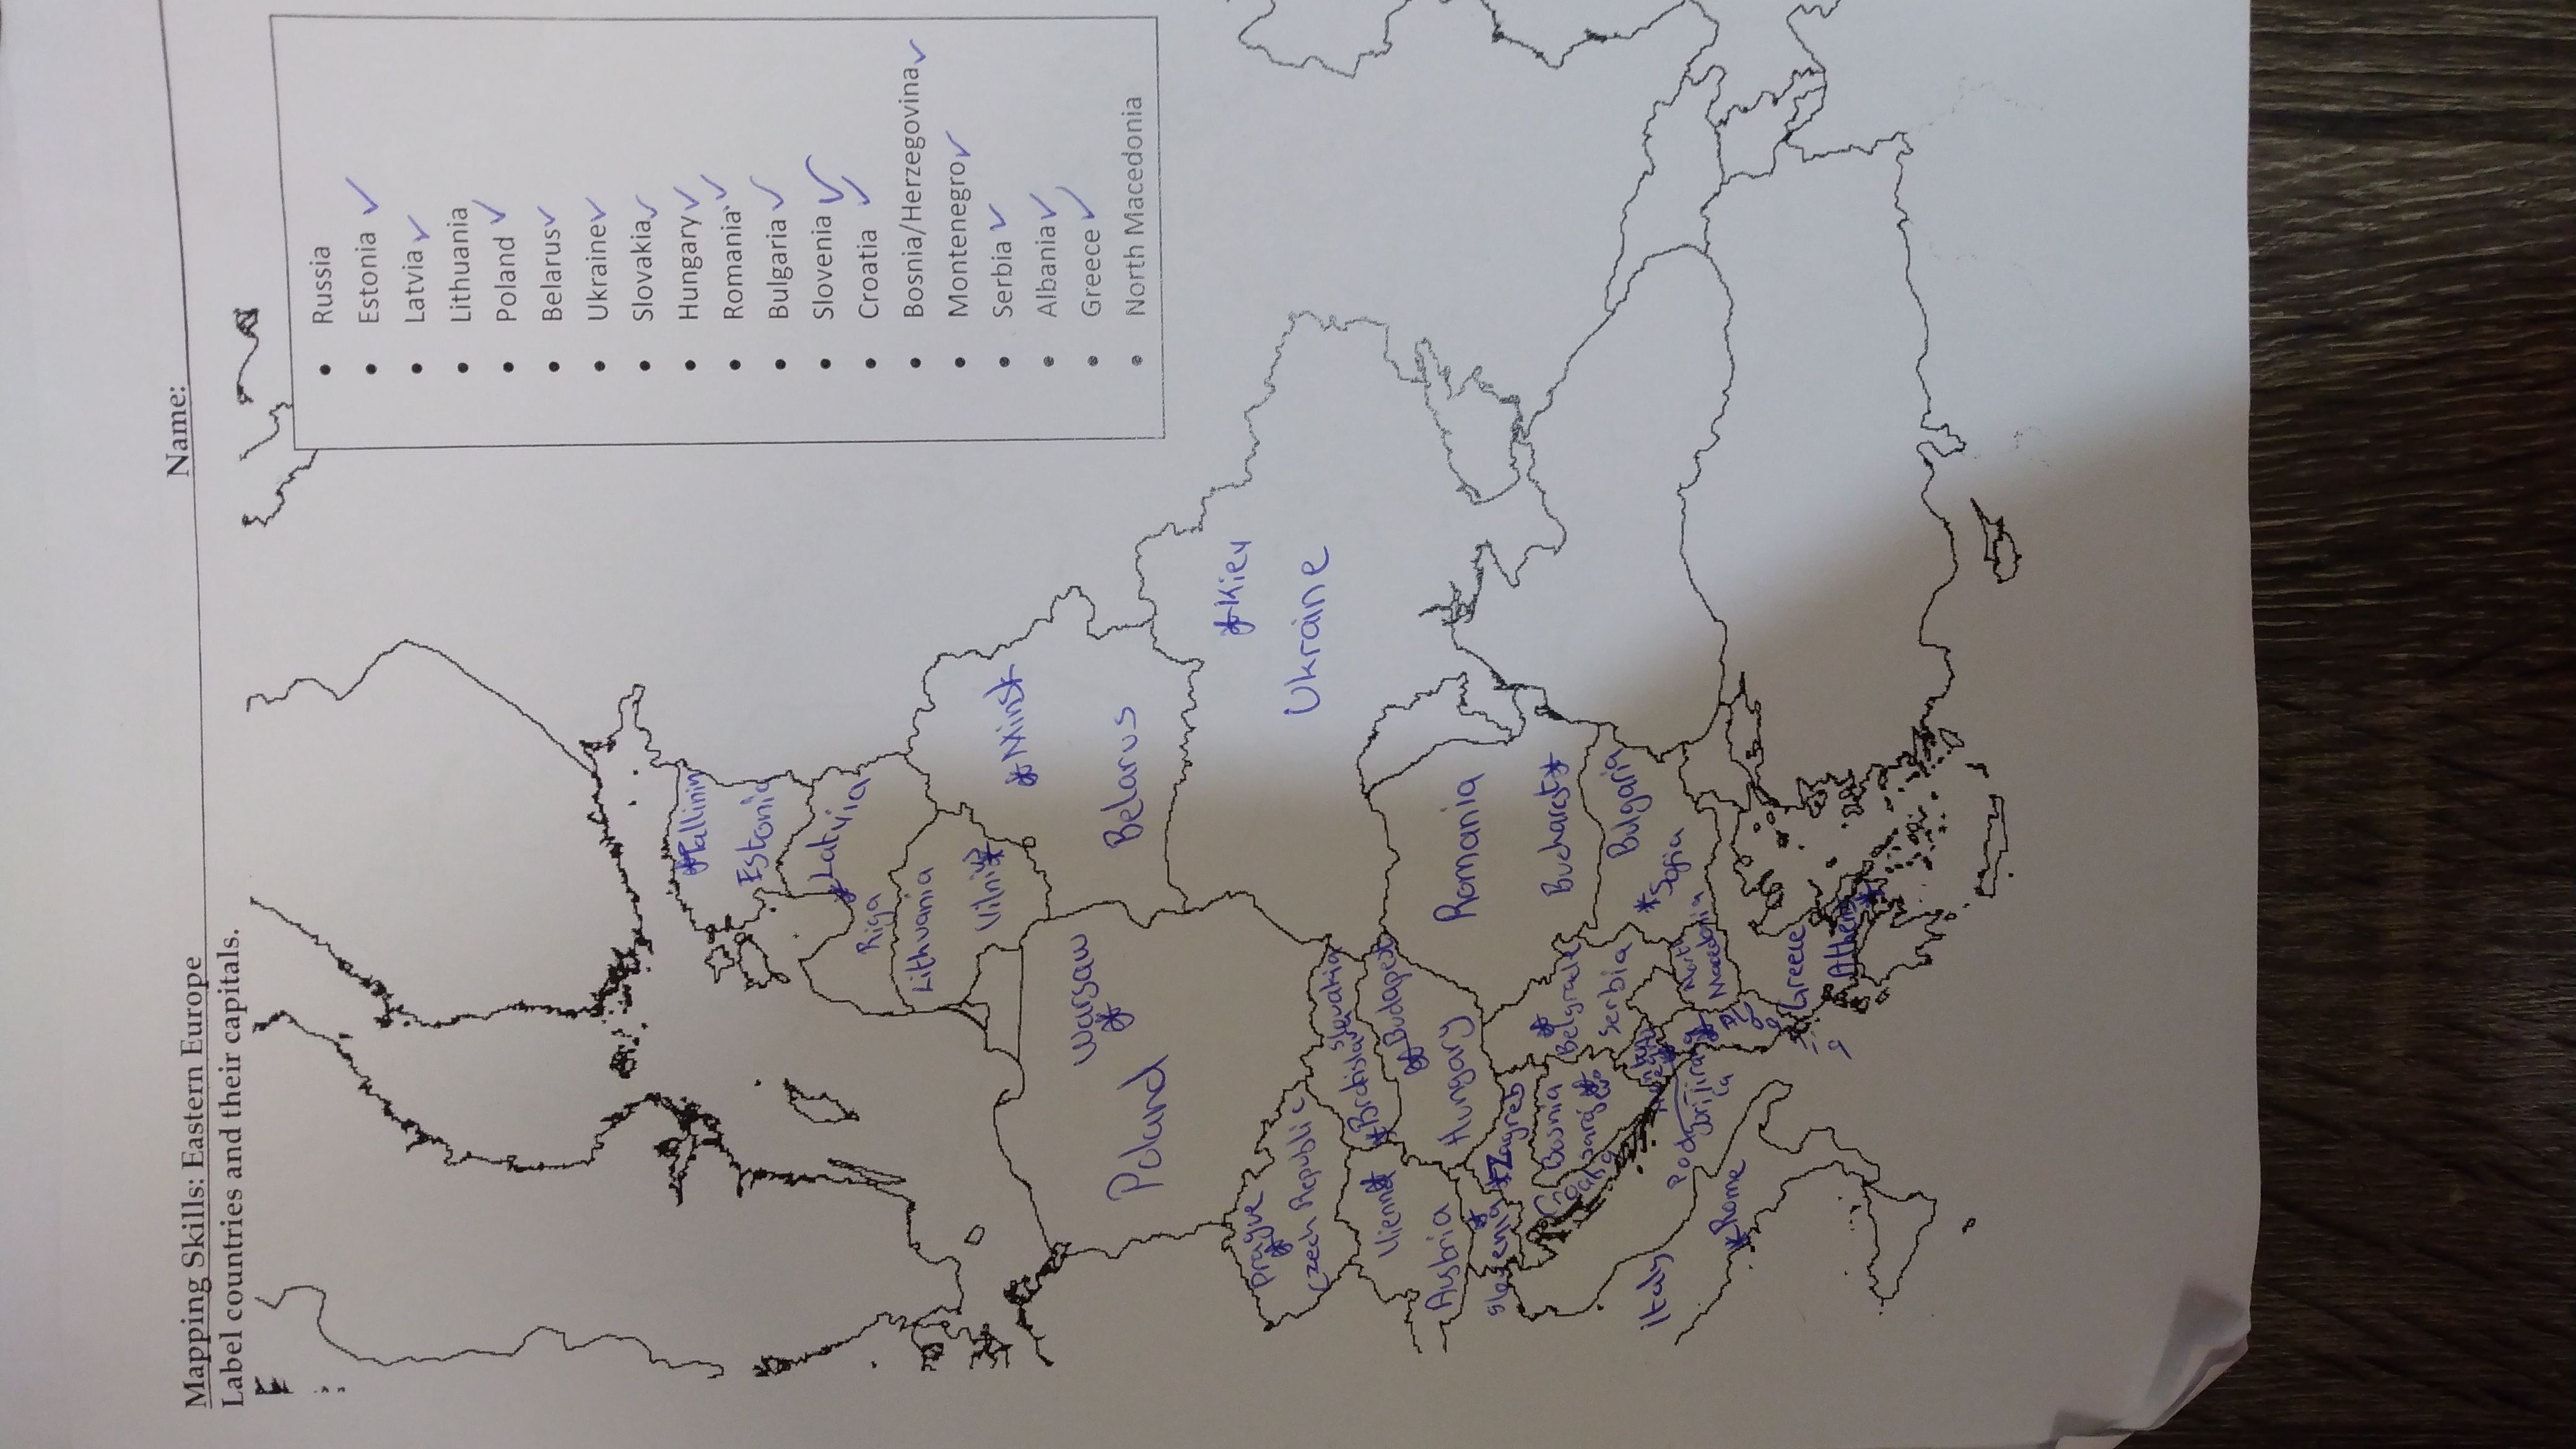 Mapping Skills: Eastern Europe
Name:
Label countries and their capitals.
• Russia
• Estonia ✓
• Latvia ✓
• Lithuania
• Poland ✓
• Belarus ✓
• Ukraine ✓
• Slovakia ✓
• Hungary ✓
• Romania ✓
• Bulgaria ✓
• Slovenia ✓
• Croatia ✓
• Bosnia/Herzegovina ✓
• Montenegro ✓
• Serbia ✓
• Albania ✓
• Greece ✓
• North Macedonia
Tallinin
Estonia
Latvia
Riga
Lithuania
Vilnius
Minsk
Warsaw
Poland
Belarus
Kiev
Ukraine
Prague
Czech Republic
Slovakia
Bratislava
Vienna
Budapest
Austria
Hungary
Romania
Slovenia
Zagreb
Croatia
Bosnia
Belgrade
Bucharest
Serbia
Bulgaria
Sofia
Italy
Pod
gori
ca
Tirana
North
Macedonia
Albania
Rome
Greece
Athens